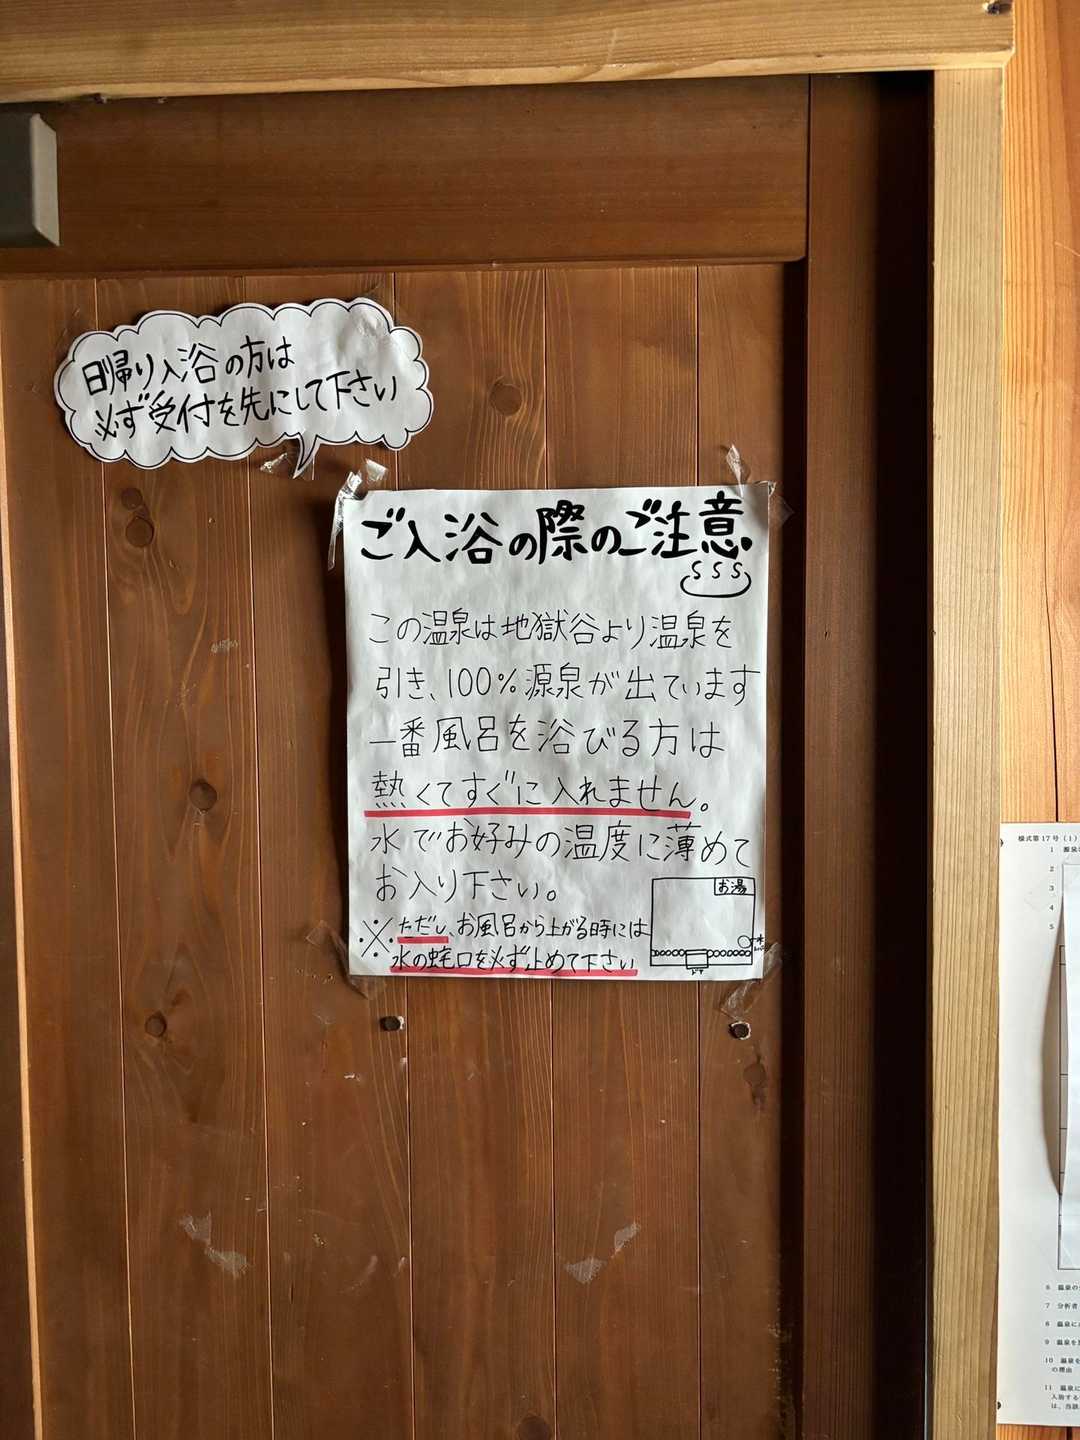 日帰り入浴の方は
必ず受付を先にして下さい
ご入浴の際のご注意
この温泉は地獄谷より温泉を
引き、100%源泉が出ています
一番風呂を浴びる方は
熱くてすぐに入れません。
水でお好みの温度に薄めて
お入り下さい。
※ただし、お風呂から上がる時には
水の蛇口を必ず止めて下さい
お湯
水
ドア
様式第17号(1)
1 源泉
2
3
4
5
6 温泉の
7 分析者
8 温泉に
9 温泉を
10 温泉を
の理由
11 温泉に
入助する
は、当該